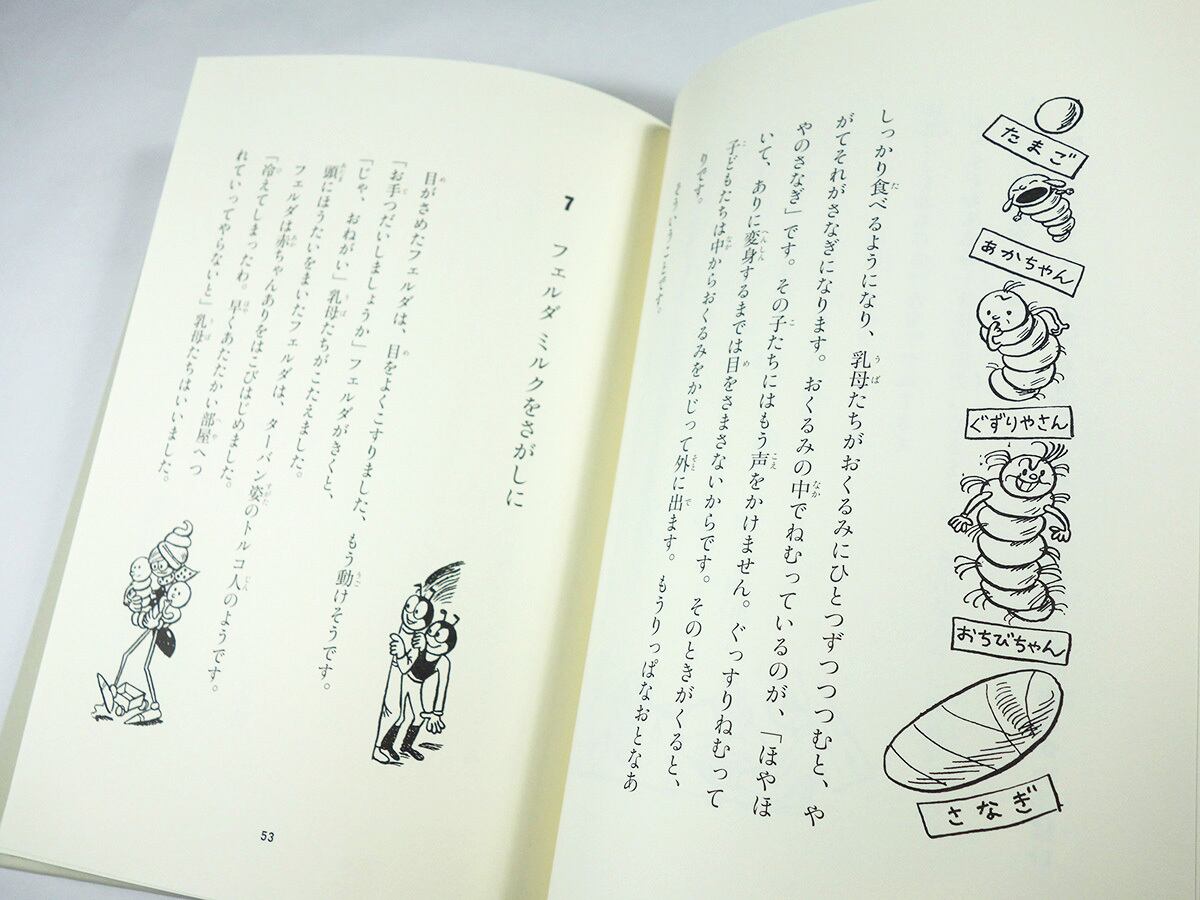 たまご
あかちゃん
ぐずりやさん
おちびちゃん
さなぎ
しっかり食べるようになり、乳母たちがおくるみにひとつずつつつむと、や
がてそれがさなぎになります。おくるみの中でねむっているのが、「ほやほ
やのさなぎ」です。その子たちにはもう声をかけません。ぐっすりねむって
いて、ありに変身するまでは目をさまさないからです。そのときがくると、
子どもたちは中からおくるみをかじって外に出ます。もうりっぱなおとなあ
りです。
そういうことです。
7 フェルダ ミルクをさがしに
目がさめたフェルダは、目をよくこすりました、もう動けそうです。
「お手つだいしましょうか」フェルダがきくと、
「じゃ、おねがい」乳母たちがこたえました。
頭にほうたいをまいたフェルダは、ターバン姿のトルコ人のようです。
フェルダは赤ちゃんありをはこびはじめました。
「冷えてしまったわ。早くあたたかい部屋へつ
れていってやらないと」乳母たちはいいました。
53